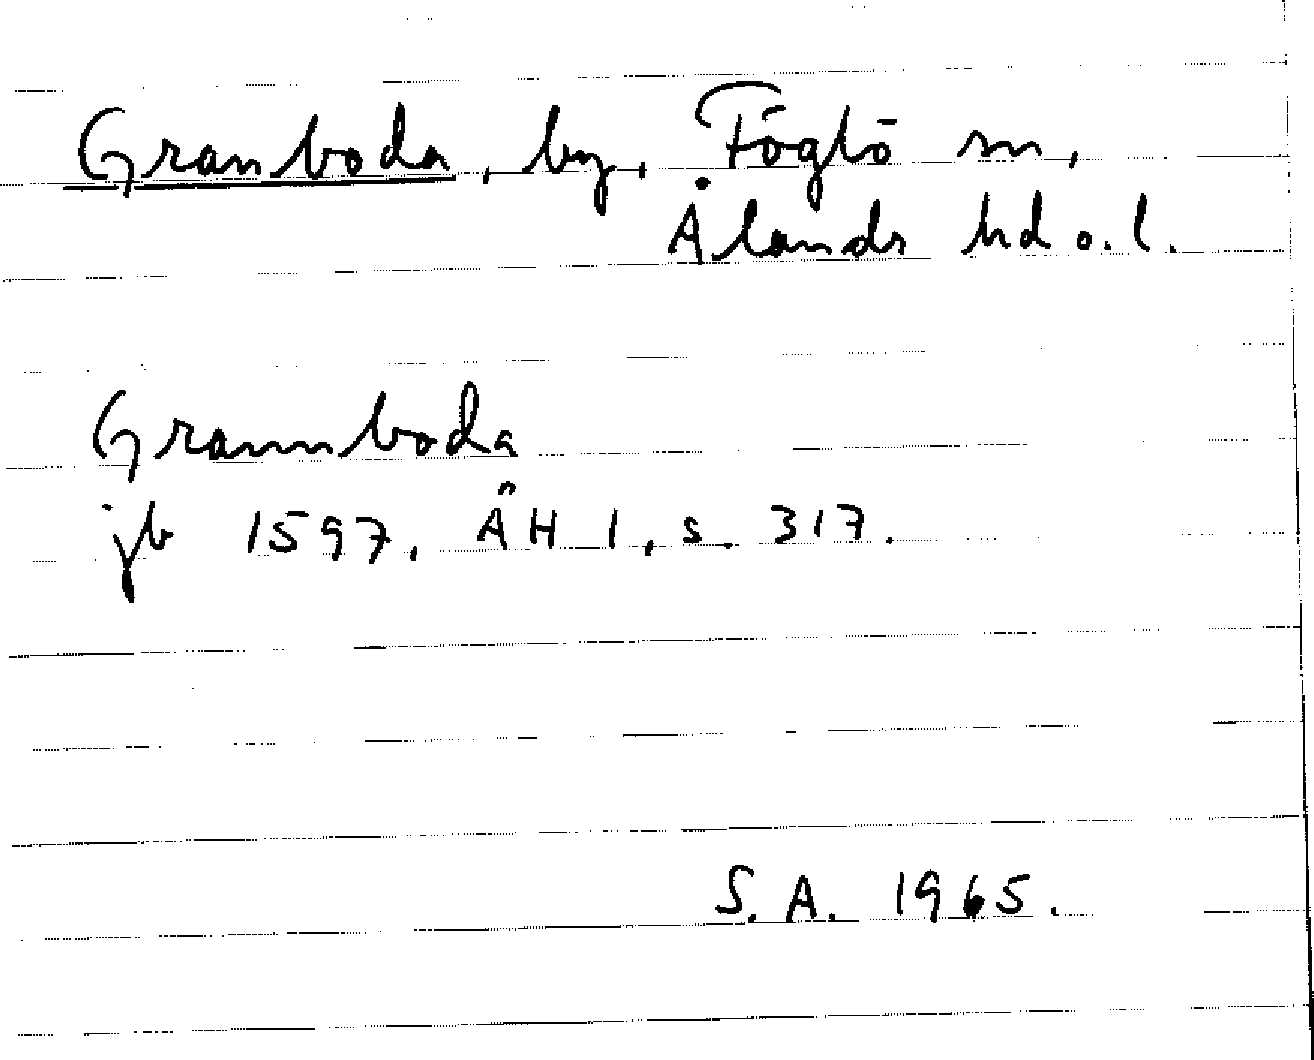 Granboda, by, Föglö sn,
Ålands hd o. l.
Grannboda
jb 1597, ÅH 1, s. 317.
S. A. 1965.